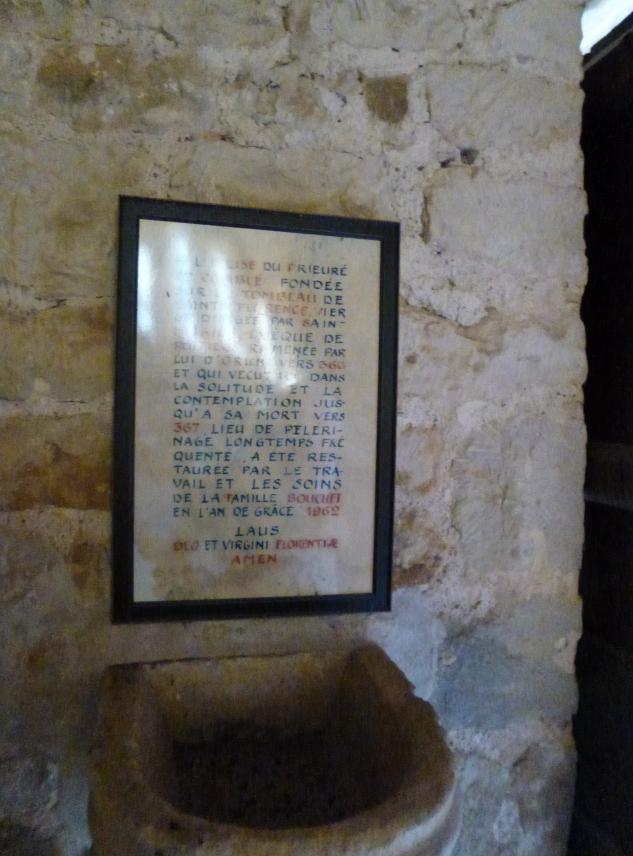 L'ÉGLISE DU PRIEURÉ
DE COMBLÉ FONDÉE
SUR LE TOMBEAU DE
SAINTE FLORENCE, VIER
PAR SAIN-
ÉVÊQUE DE
POITIERS RAMENÉE PAR
LUI D'ORIENT VERS 360
ET QUI VECUT DANS
LA SOLITUDE ET LA
CONTEMPLATION JUS-
QU'A SA MORT VERS
367, LIEU DE PELERI-
NAGE LONGTEMPS FRÉ
QUENTÉ, A ÉTÉ RES-
TAURÉE PAR LE TRA-
VAIL ET LES SOINS
DE LA FAMILLE BOUCHET
EN L'AN DE GRÂCE 1962
LAUS
DEO ET VIRGINI FLORENTIÆ
AMEN